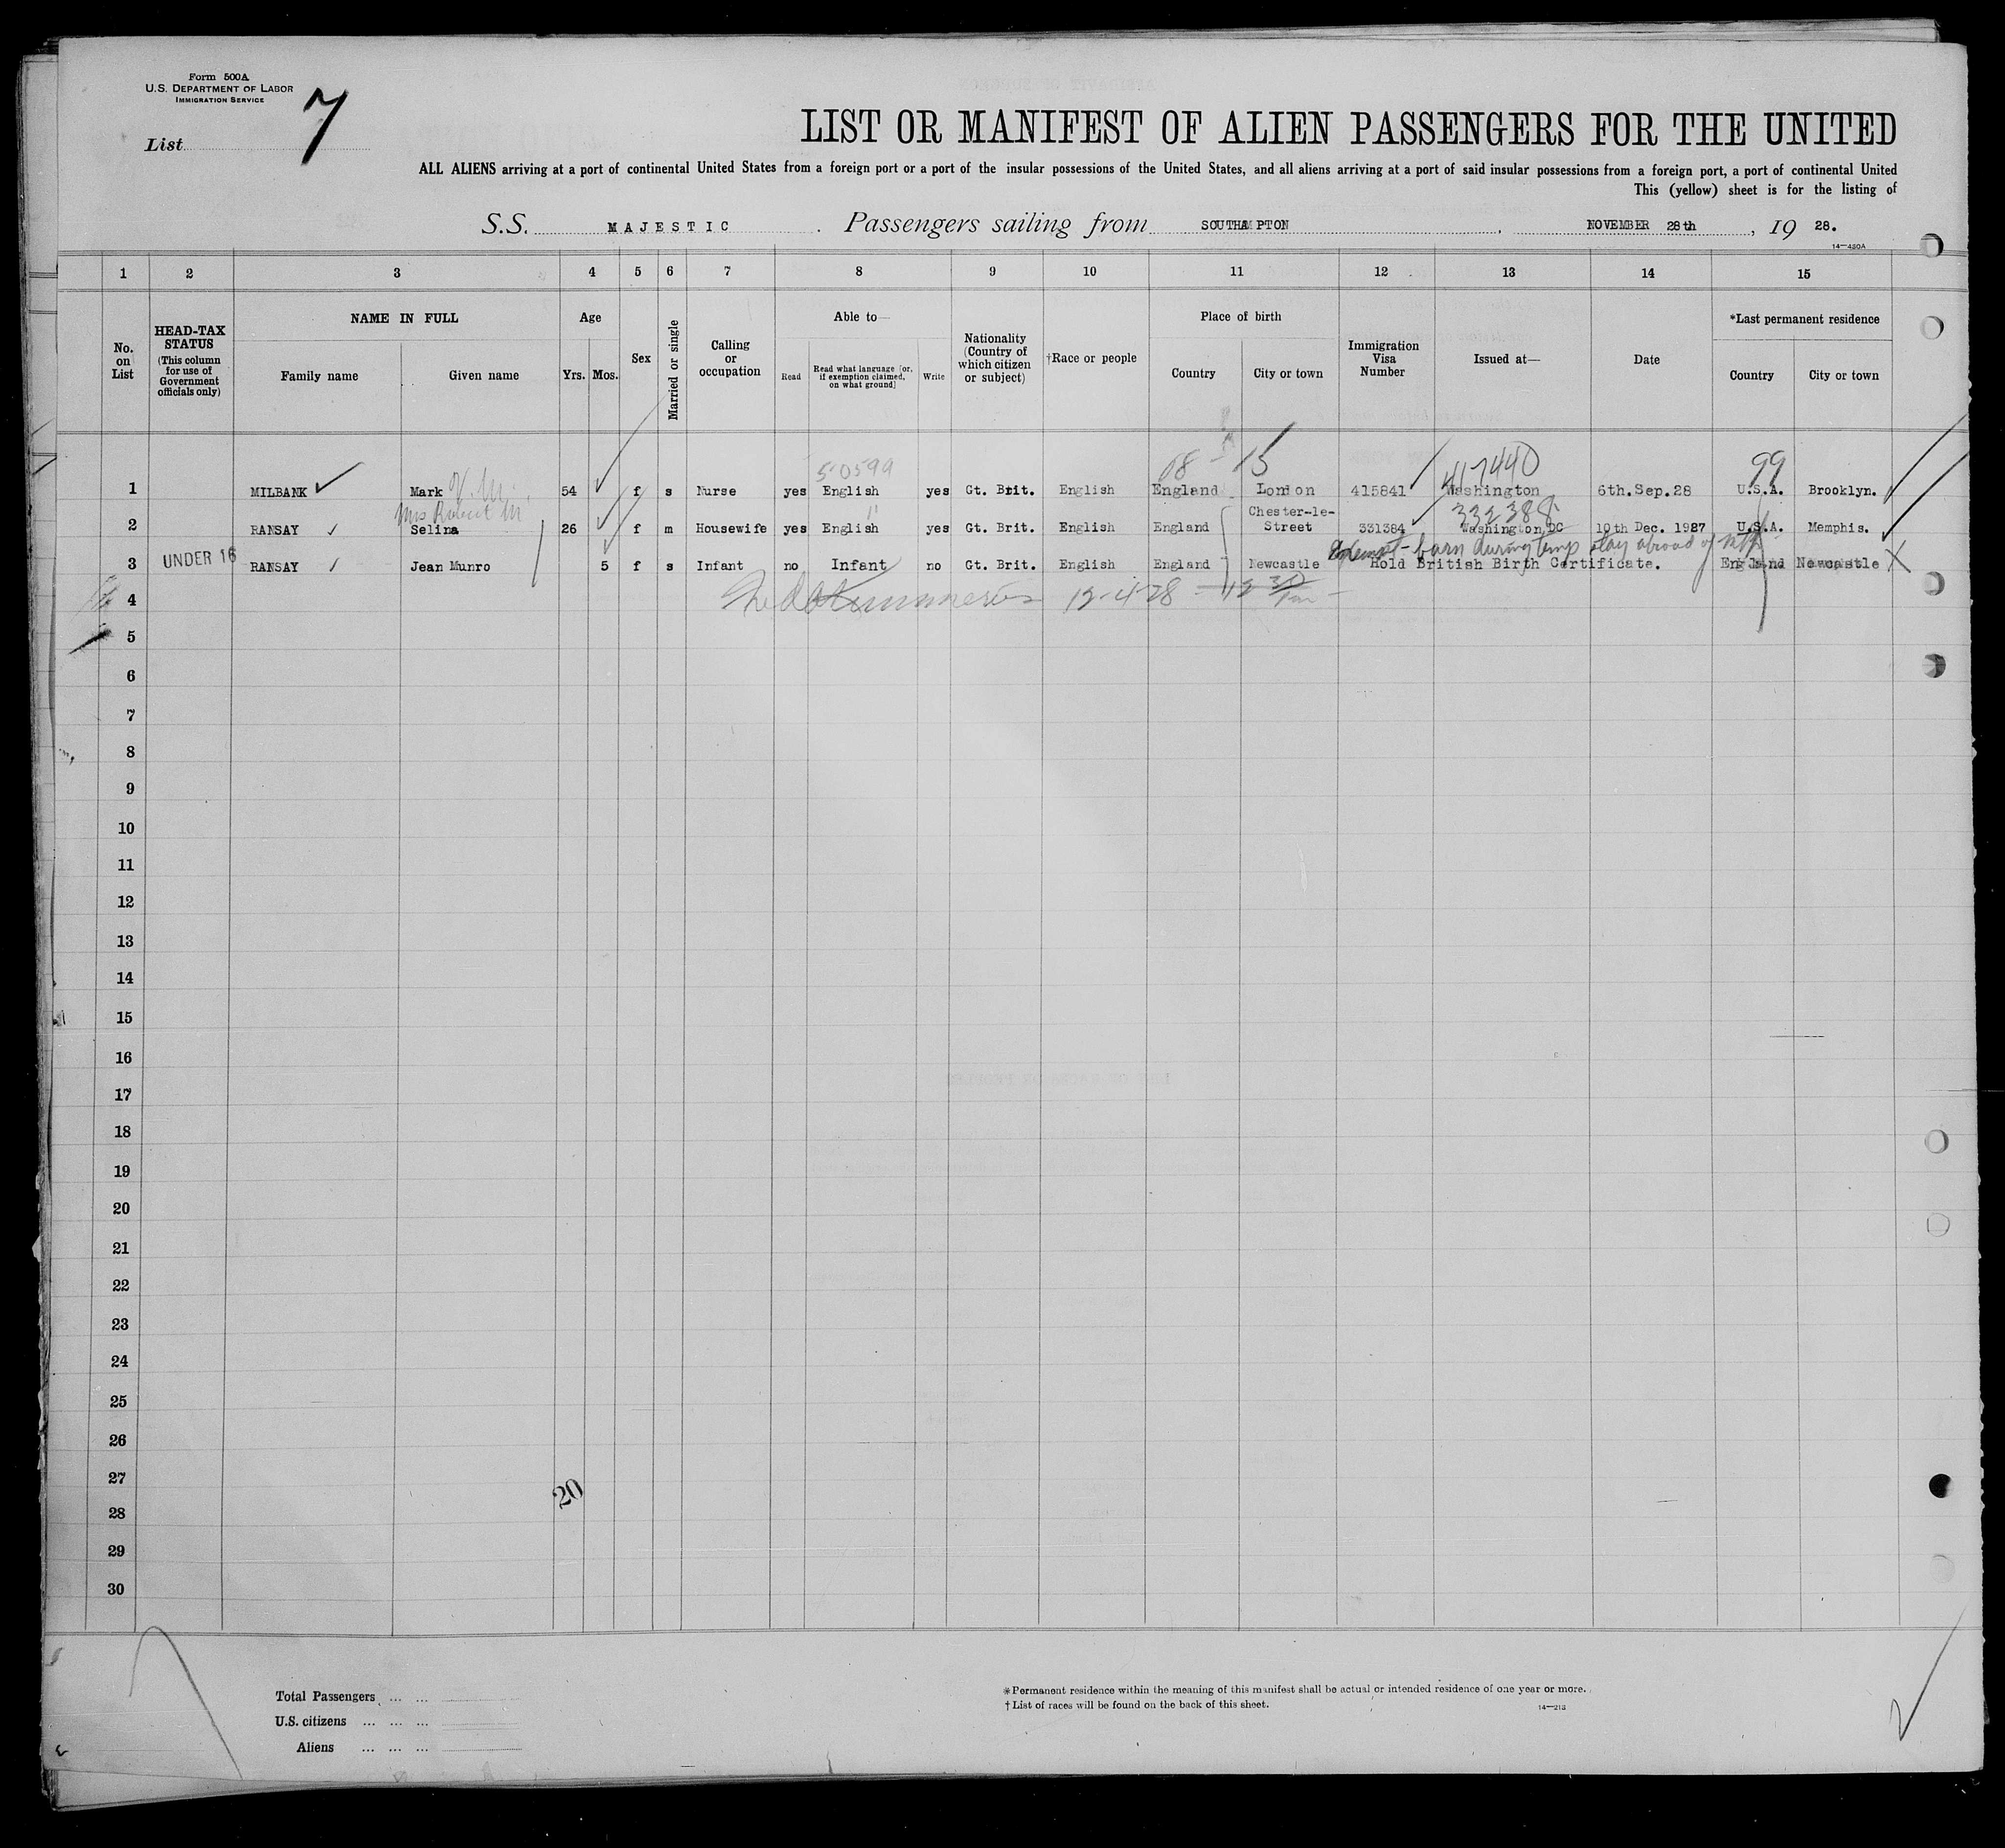 Form 500A
U.S. DEPARTMENT OF LABOR
IMMIGRATION SERVICE
List 7
LIST OR MANIFEST OF ALIEN PASSENGERS FOR THE UNITED
ALL ALIENS arriving at a port of continental United States from a foreign port or a port of the insular possessions of the United States, and all aliens arriving at a port of said insular possessions from a foreign port, a port of continental United
This (yellow) sheet is for the listing of
S.S. MAJESTIC. Passengers sailing from SOUTHAMPTON, NOVEMBER 28th, 19 28.
14—480A
1 2 3 4 5 6 7 8 9 10 11 12 13 14 15
No. on List
HEAD-TAX STATUS (This column for use of Government officials only)
NAME IN FULL
Family name Given name
Age
Yrs. Mos.
Sex
Married or single
Calling or occupation
Able to—
Read Read what language [or, if exemption claimed, on what ground] Write
Nationality (Country of which citizen or subject)
†Race or people
Place of birth
Country City or town
Immigration Visa Number
Issued at—
Date
*Last permanent residence
Country City or town
50599 15 417440 99
1 MILBANK Mark 54 f s Nurse yes English yes Gt. Brit. English England London 415841 Washington 6th.Sep.28 U.S.A. Brooklyn.
Mrs Robert M 332388
2 RANSAY Selina 26 f m Housewife yes English yes Gt. Brit. English England Chester-le-Street 331384 Washington,DC 10th Dec. 1927 U.S.A. Memphis.
Exempt - born during temp stay abroad of
3 UNDER 16 RANSAY Jean Munro 5 f s Infant no Infant no Gt. Brit. English England Newcastle Hold British Birth Certificate. England Newcastle X
4 12-4-28 - 12 30
5
6
7
8
9
10
11
12
13
14
15
16
17
18
19
20
21
22
23
24
25
26
27
20
28
29
30
Total Passengers ... ...
U.S. citizens ... ... ...
Aliens ... ... ...
*Permanent residence within the meaning of this manifest shall be actual or intended residence of one year or more.
†List of races will be found on the back of this sheet.
14—213